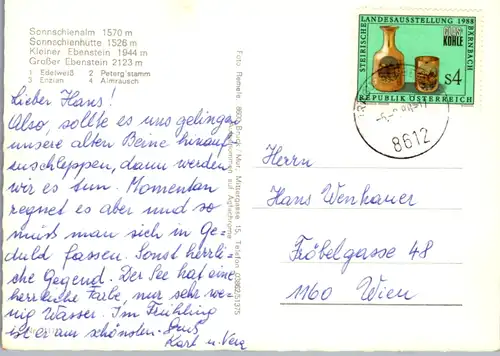 Sonnschienalm 1570 m
Sonnschienhütte 1526 m
Kleiner Ebenstein 1944 m
Großer Ebenstein 2123 m
1 Edelweiß 2 Peterg'stamm
3 Enzian 4 Almrausch
Lieber Hans!
Also, sollte es uns gelingen
unsere alten Beine hinauf-
zuschleppen, dann werden
wir es tun. Momentan
regnet es aber und so
muß man sich in Ge-
duld fassen. Sonst herrli-
che Gegend. Der See hat eine
herrliche Farbe, nur sehr we-
nig Wasser. Im Frühling
ist er am schönsten.
Karl u. Vera
Foto 8600 Bruck/Mur, Mittergasse 15, Telefon
STEIRISCHE LANDESAUSSTELLUNG 1988 BÄRNBACH
GLAS KOHLE
S4
REPUBLIK ÖSTERREICH
8612
Herrn
Hans Wenhauer
Fröbelgasse 48
1160 Wien